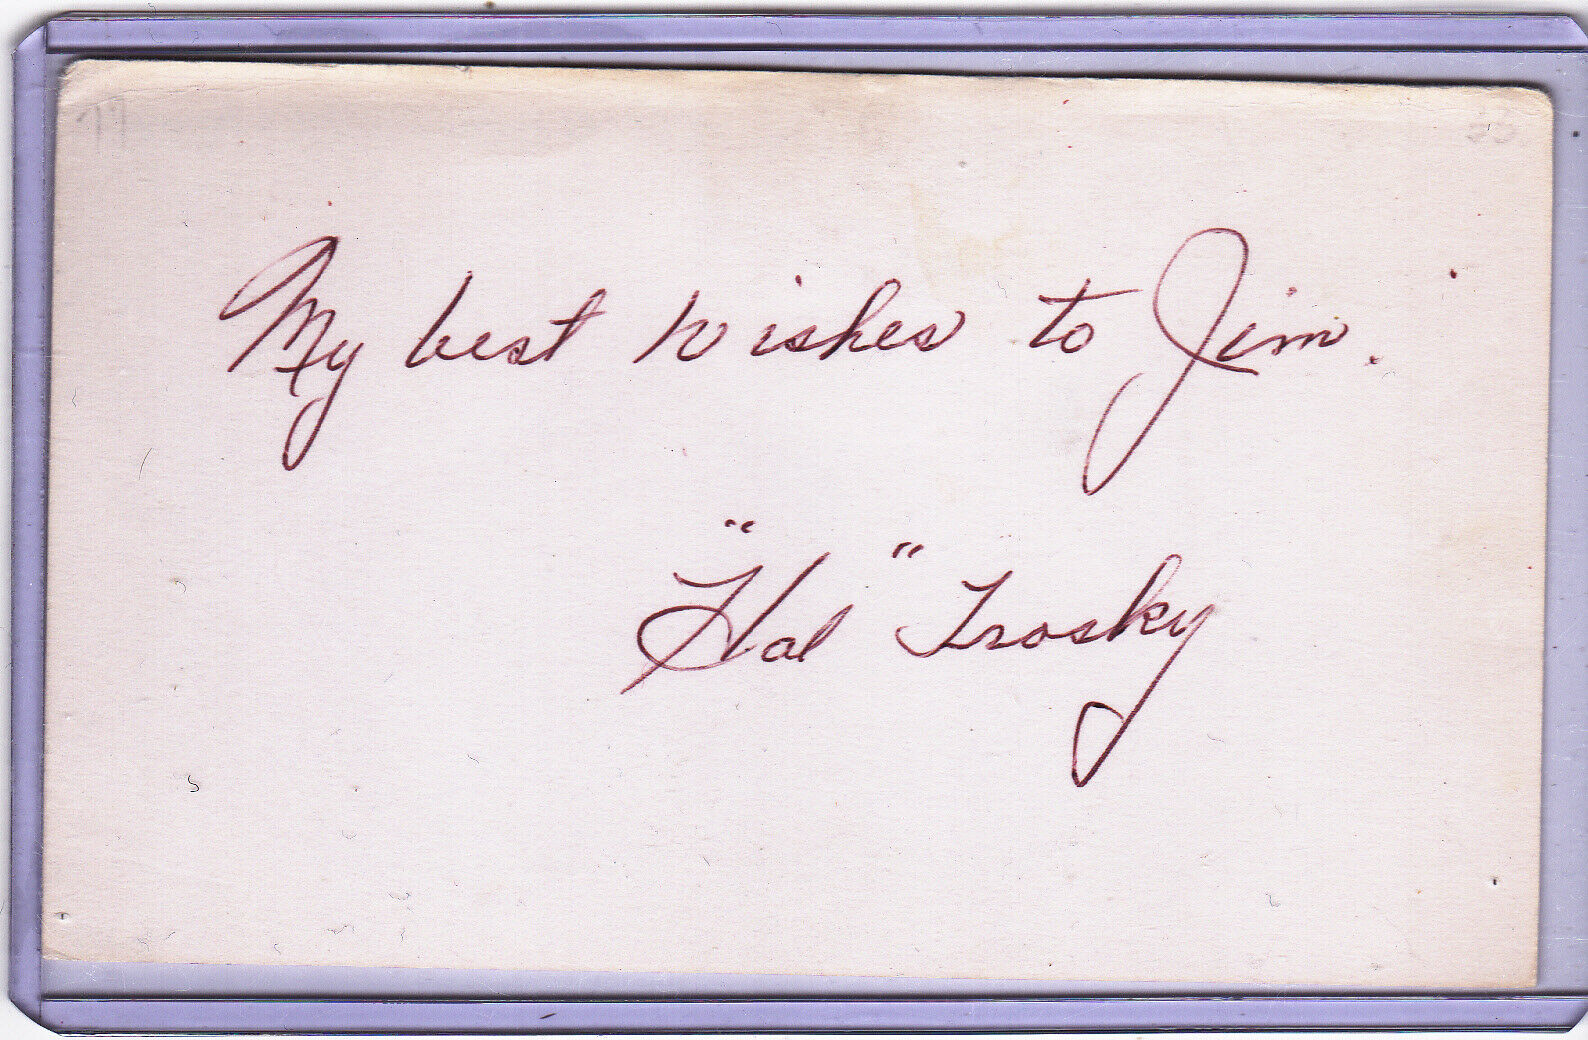 My best wishes to Jim.
"Hal" Trosky